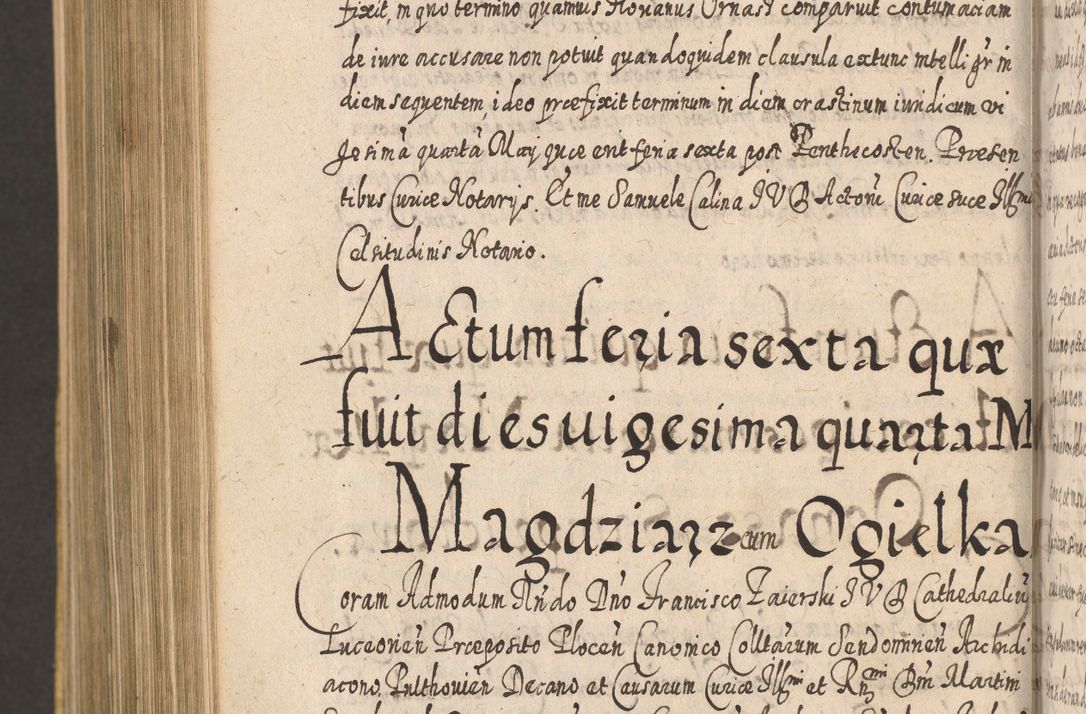 fixit, in quo termino quamuis Florianus Ornast comparuit contumaciam
de iure accusare non potuit quandoquidem clausula extunc intelligr in
diem sequentem, ideo præfixit terminum in diem crastinum iuridicum vi
gesima quarta May quæ erit feria sexta post Penthecosten. Præsen
tibus Curiæ Notarijs. Et me Samuele Calina IVD Actorũ Curiæ suæ Illmæ
Celsitudinis Notario.
Actum feria sexta quæ
fuit dies uigesima quarta M
Magdziarz cum Ogielka
Coram Admodum Rñdo Dño Francisco Zaierski IVD Cathedraliũ
Luceorień Præposito Plocen Canonico Colltarum Sendomirień Archidi
acono, Pulthouień Decano et Causarum Curiæ Illmi et Rñmi Dñi Martini